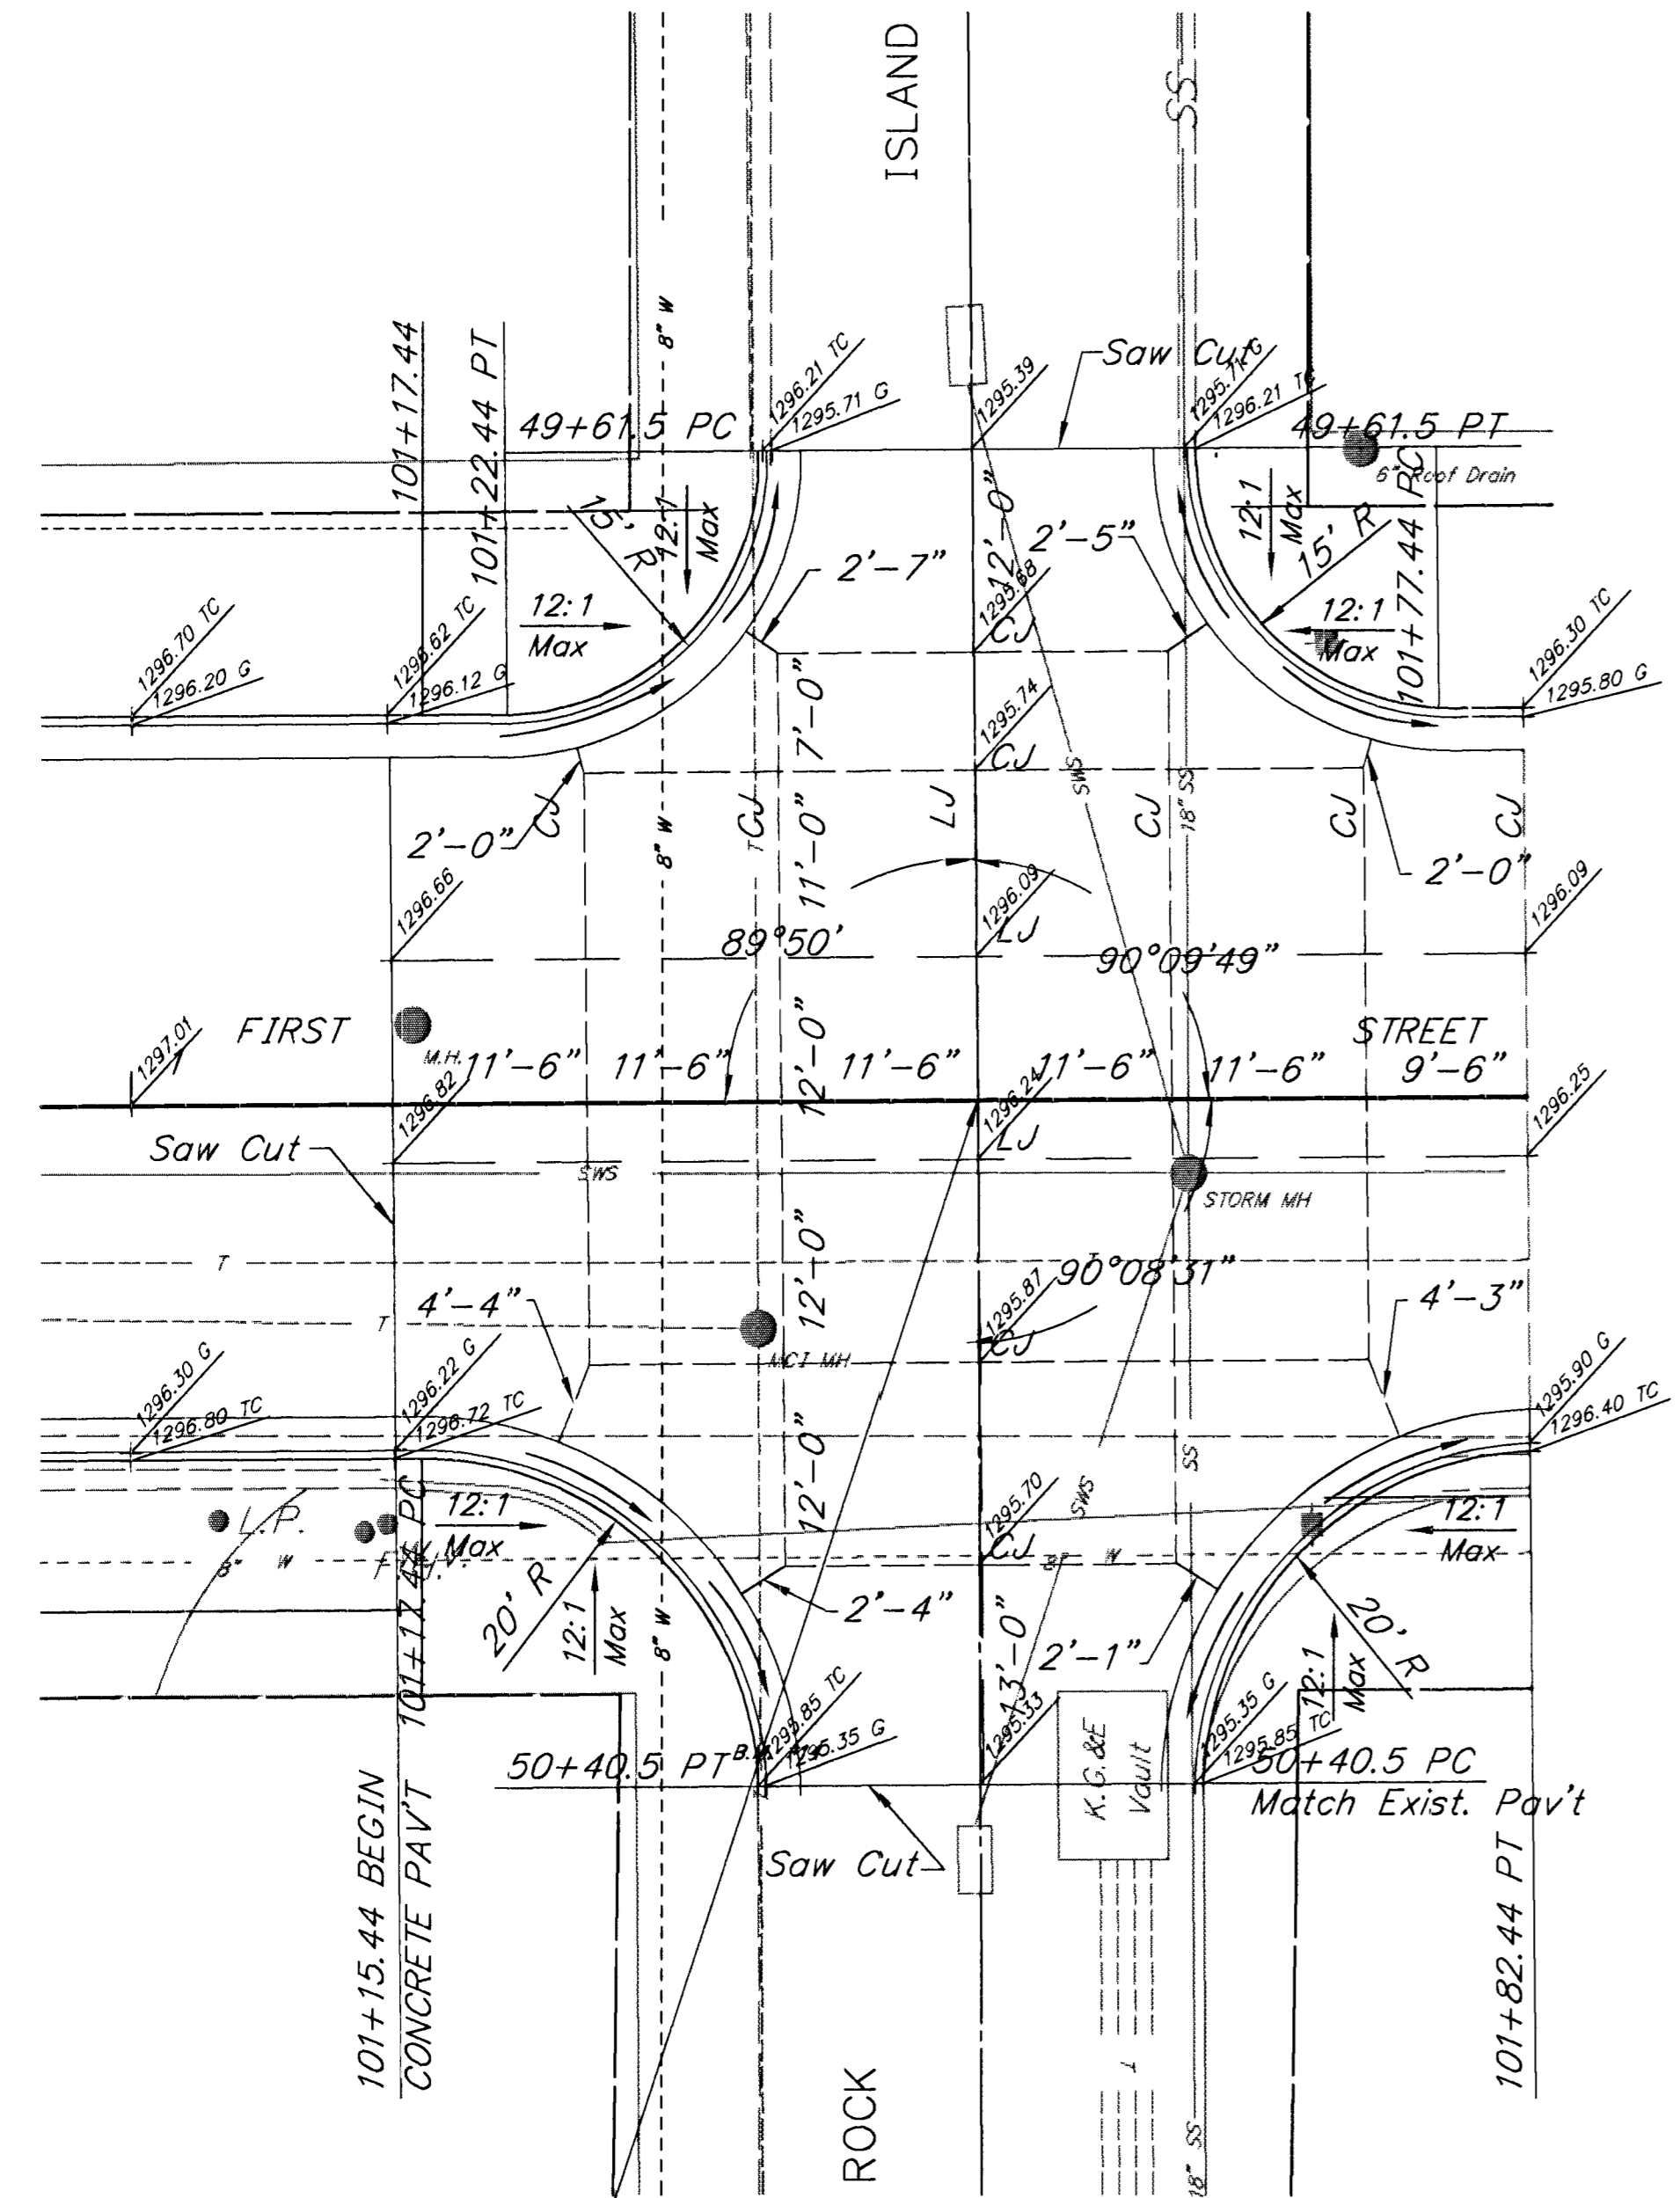 ISLAND
SS
8" W
101+17.44
101+22.44 PT
49+61.5 PC
1296.21 TC
1295.71 G
1295.39
Saw Cut
1295.71 G
1296.21 TC
49+61.5 PT
6" Roof Drain
15' R
12:1
Max
12'-0"
2'-7"
2'-5"
12:1
Max
15' R
101+77.44 PC
12:1
Max
12:1
Max
1296.70 TC
1296.20 G
1296.62 TC
1296.12 G
1295.68
CJ
1296.30 TC
1295.80 G
7'-0"
1295.74
CJ
SWS
2'-0"
CJ
8" W
T
CJ
11'-0"
LJ
CJ
18" SS
CJ
2'-0"
CJ
1296.66
1296.09
LJ
1296.09
89°50'
90°09'49"
FIRST
STREET
1297.01
M.H.
11'-6"
11'-6"
12'-0"
11'-6"
11'-6"
11'-6"
9'-6"
1296.82
1296.24
LJ
1296.25
Saw Cut
SWS
STORM MH
T
12'-0"
90°08'31"
4'-4"
1295.87
CJ
4'-3"
T
MCI MH
1296.30 G
1296.80 TC
1296.22 G
1296.72 TC
1295.90 G
1296.40 TC
12'-0"
SS
SWS
1295.70
CJ
L.P.
8" W
101+17.44 PC
12:1
Max
12:1
Max
W
20' R
12:1
Max
8" W
2'-4"
13'-0"
2'-1"
20' R
12:1
Max
1295.85 TC
1295.35 G
1295.33
K.G.&E
Vault
1295.35 G
1295.85 TC
50+40.5 PT
50+40.5 PC
Match Exist. Pav't
Saw Cut
101+15.44 BEGIN
CONCRETE PAV'T
101+82.44 PT
ROCK
T
18" SS